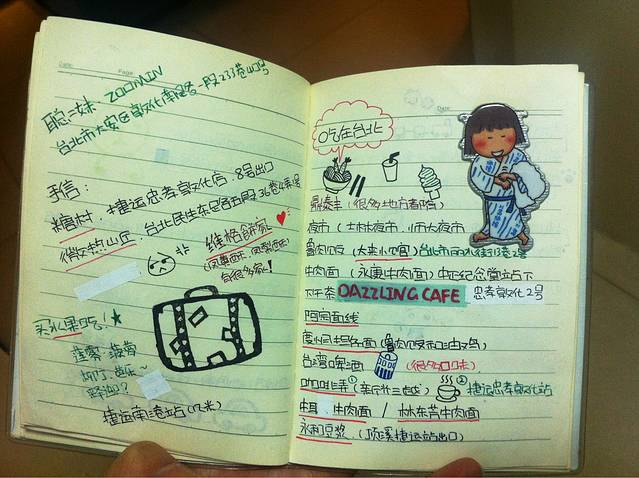 聪=妹 ZOOMIN
台北市大安区敦化南路一段233巷40号
手信：
糖村．捷运忠孝敦化店．8号出口
微热山丘．台北民生东路五段36巷4弄1号
维格饼家
(凤黄酥．凤梨酥)
有很多家！
买水果吃！
莲雾 菠萝
捷运南港站(几米)
吃在台北
鼎泰丰（很多地方有店）
夜市（士林夜市．师大夜市
卤肉饭（大来小馆）台北市永康街7巷2号
牛肉面（永康牛肉面）中正纪念堂站下
下午茶 DAZZLING CAFE 忠孝敦化2号
阿宗面线
度小月担仔面（卤肉饭和
台湾啤酒（很多口味）
咖啡弄①（新光三越）② 捷运忠孝敦化站
牛肉面 / 林东芳牛肉面
永和豆浆．（顶溪捷运站出口）